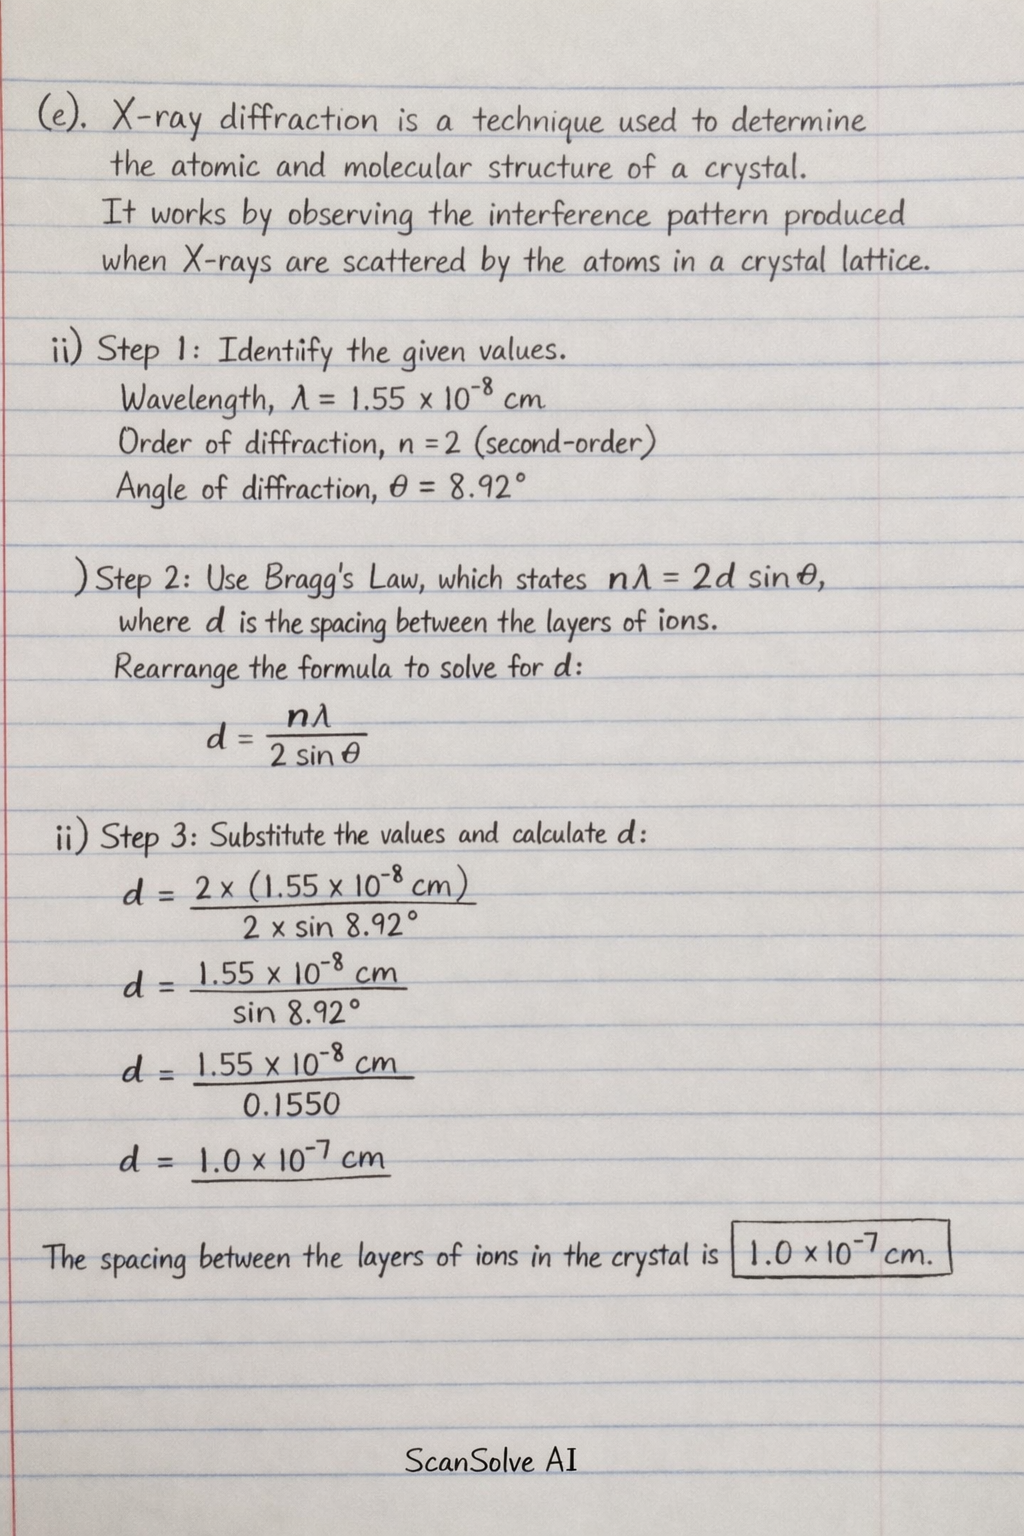 (e). X-ray diffraction is a technique used to determine
the atomic and molecular structure of a crystal.
It works by observing the interference pattern produced
when X-rays are scattered by the atoms in a crystal lattice.
ii) Step 1: Identiify the given values.
Wavelength, λ = 1.55 × 10⁻⁸ cm
Order of diffraction, n = 2 (second-order)
Angle of diffraction, θ = 8.92°
) Step 2: Use Bragg's Law, which states nλ = 2d sin θ,
where d is the spacing between the layers of ions.
Rearrange the formula to solve for d:
d = nλ / 2 sin θ
ii) Step 3: Substitute the values and calculate d:
d = 2 × (1.55 × 10⁻⁸ cm) / 2 × sin 8.92°
d = 1.55 × 10⁻⁸ cm / sin 8.92°
d = 1.55 × 10⁻⁸ cm / 0.1550
d = 1.0 × 10⁻⁷ cm
The spacing between the layers of ions in the crystal is 1.0 × 10⁻⁷ cm.
ScanSolve AI